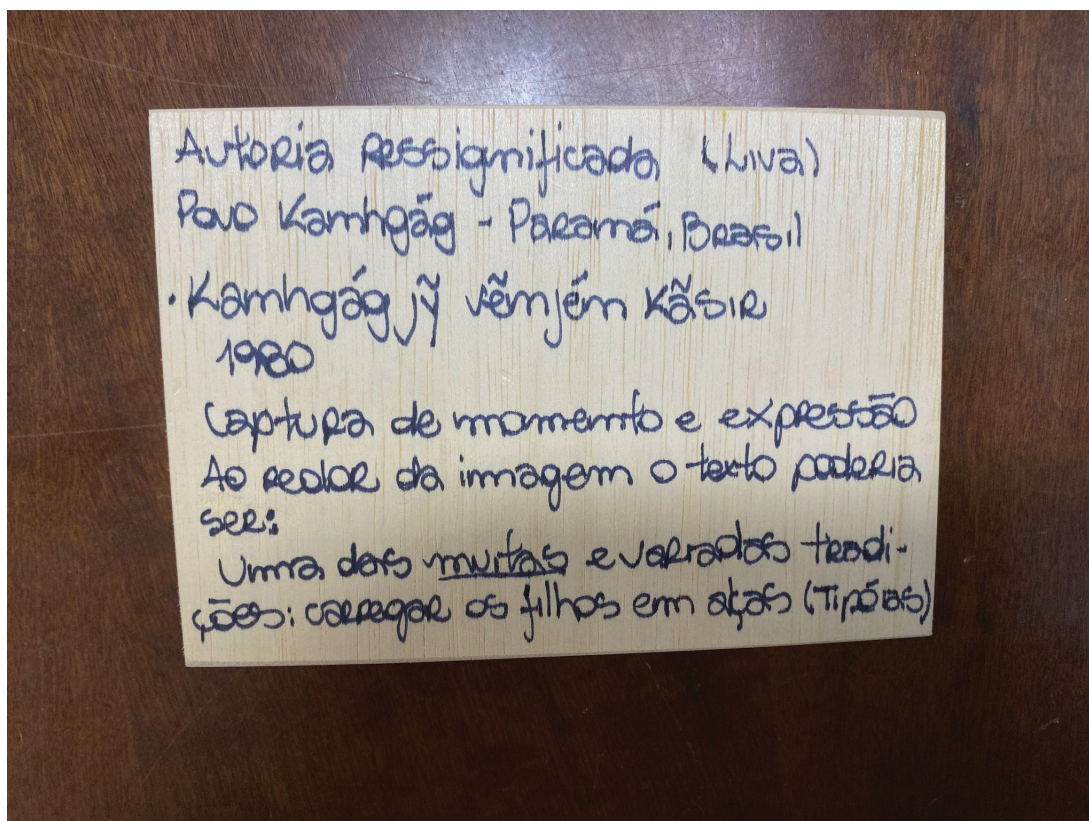 Autoria Ressignificada (Liva)
Povo Kamhgág - Paraná, Brasil
• Kamhgág jỹ vẽnjén kãsir
1980
Captura de momento e expressão
Ao redor da imagem o texto poderia
ser:
Uma das muitas e variadas tradi-
ções: carregar os filhos em alças (Tipóias)